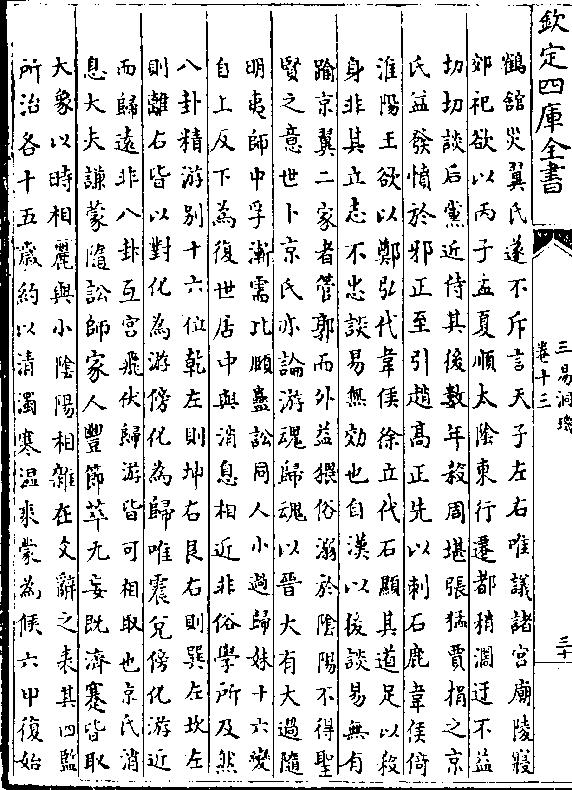 欽定四庫全書
三易洞璣
卷十三
三十
鶴舘災翼氏遂不斥言天子左右唯議諸宮廟陵寢
郊祀欲以丙子孟夏順太陰東行遷都稍濶迂不益
切切談后黨近侍其後數年殺周堪張猛賈捐之京
氏益發憤於邪正至引趙高正先以刺石鹿韋侯倚
淮陽王欲以鄭弘代韋侯徐立代石顯其道足以殺
身非其立志不忠談易無効也自漢以後談易無有
踰京翼二家者管郭而外益猥俗溺於陰陽不得聖
賢之意世卜京氏亦論游魂歸魂以晉大有大過隨
明夷師中孚漸需比頤蠱訟同人小過歸妹十六變
自上反下為復世居中與消息相近非俗學所及然
八卦精游别十六位乾左則坤右艮右則巽左坎左
則離右皆以對化為游傍化為歸唯震兌傍化游近
而歸遠非八卦互宮飛伏歸游皆可相取也京氏消
息大夫謙蒙隨訟師家人豐節萃无妄既濟蹇皆取
大象以時相麗與小陰陽相雜在文辭之表其四監
所治各十五歲約以清濁寒温來蒙為候六甲復始